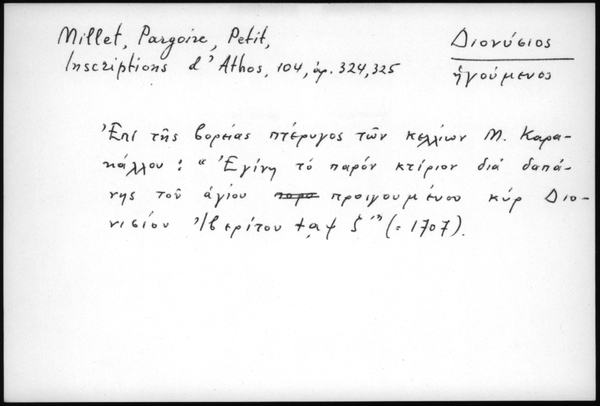 Millet, Pargoire, Petit,
Inscriptions d'Athos, 104, ἀρ. 324, 325
Διονύσιος
ἡγούμενος
Ἐπί τῆς βορείας πτέρυγος τῶν κελλίων Μ. Καρα-
κάλλου: " Ἐγίνη τό παρόν κτίριον διά δαπά-
νης τοῦ ἁγίου προιγουμένου κύρ Διο-
νισίου Ἠβερίτου ͵αψζ´" (= 1707).